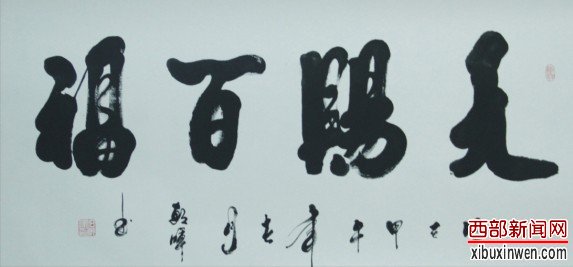 天賜百福
甲午年月
西部新闻网
xibuxinwen.com